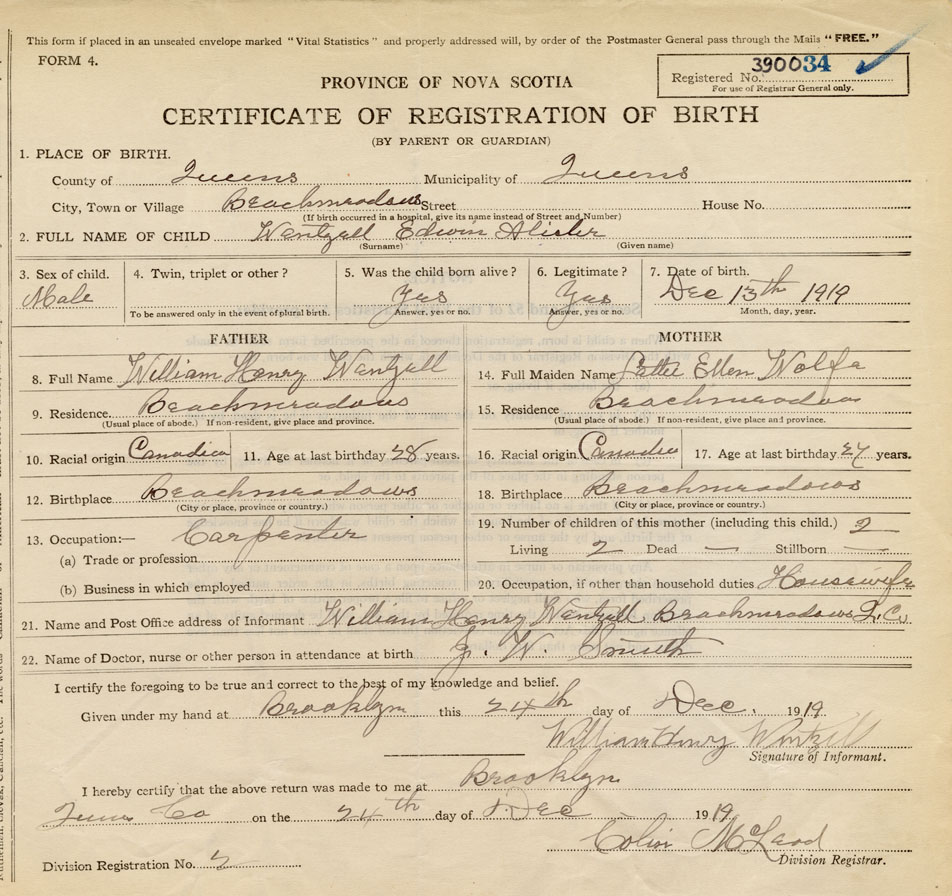 This form if placed in an unsealed envelope marked "Vital Statistics" and properly addressed will, by order of the Postmaster General pass through the Mails "FREE."
FORM 4.
390034
Registered No.
For use of Registrar General only.
PROVINCE OF NOVA SCOTIA
CERTIFICATE OF REGISTRATION OF BIRTH
(BY PARENT OR GUARDIAN)
1. PLACE OF BIRTH.
County of Queens Municipality of Queens
City, Town or Village Beachmeadows Street House No.
(If birth occurred in a hospital, give its name instead of Street and Number)
2. FULL NAME OF CHILD Wentzell Edwin Alister
(Surname) (Given name)
3. Sex of child. 4. Twin, triplet or other? 5. Was the child born alive? 6. Legitimate? 7. Date of birth.
Male Yes Yes Dec 13th 1919
To be answered only in the event of plural birth. Answer, yes or no. Answer, yes or no. Month, day, year.
FATHER
8. Full Name William Henry Wentzell
9. Residence. Beachmeadows
(Usual place of abode.) If non-resident, give place and province.
10. Racial origin Canadian 11. Age at last birthday 28 years.
12. Birthplace Beachmeadows
(City or place, province or country.)
13. Occupation:— Carpenter
(a) Trade or profession
(b) Business in which employed
MOTHER
14. Full Maiden Name Ellen Wolfe
15. Residence Beachmeadows
(Usual place of abode.) If non-resident, give place and province.
16. Racial origin Canadian 17. Age at last birthday years.
18. Birthplace Beachmeadows
(City or place, province or country.)
19. Number of children of this mother (including this child.) 2
Living 2 Dead — Stillborn —
20. Occupation, if other than household duties Housewife
21. Name and Post Office address of Informant William Henry Wentzell Beachmeadows Q. Co
22. Name of Doctor, nurse or other person in attendance at birth W. Smith
I certify the foregoing to be true and correct to the best of my knowledge and belief.
Given under my hand at Brooklyn this 24th day of Dec. 1919
William Henry Wentzell
Signature of Informant.
I hereby certify that the above return was made to me at Brooklyn
Queens Co on the 24th day of Dec 1919
Colin McLeod
Division Registration No. 2 Division Registrar.